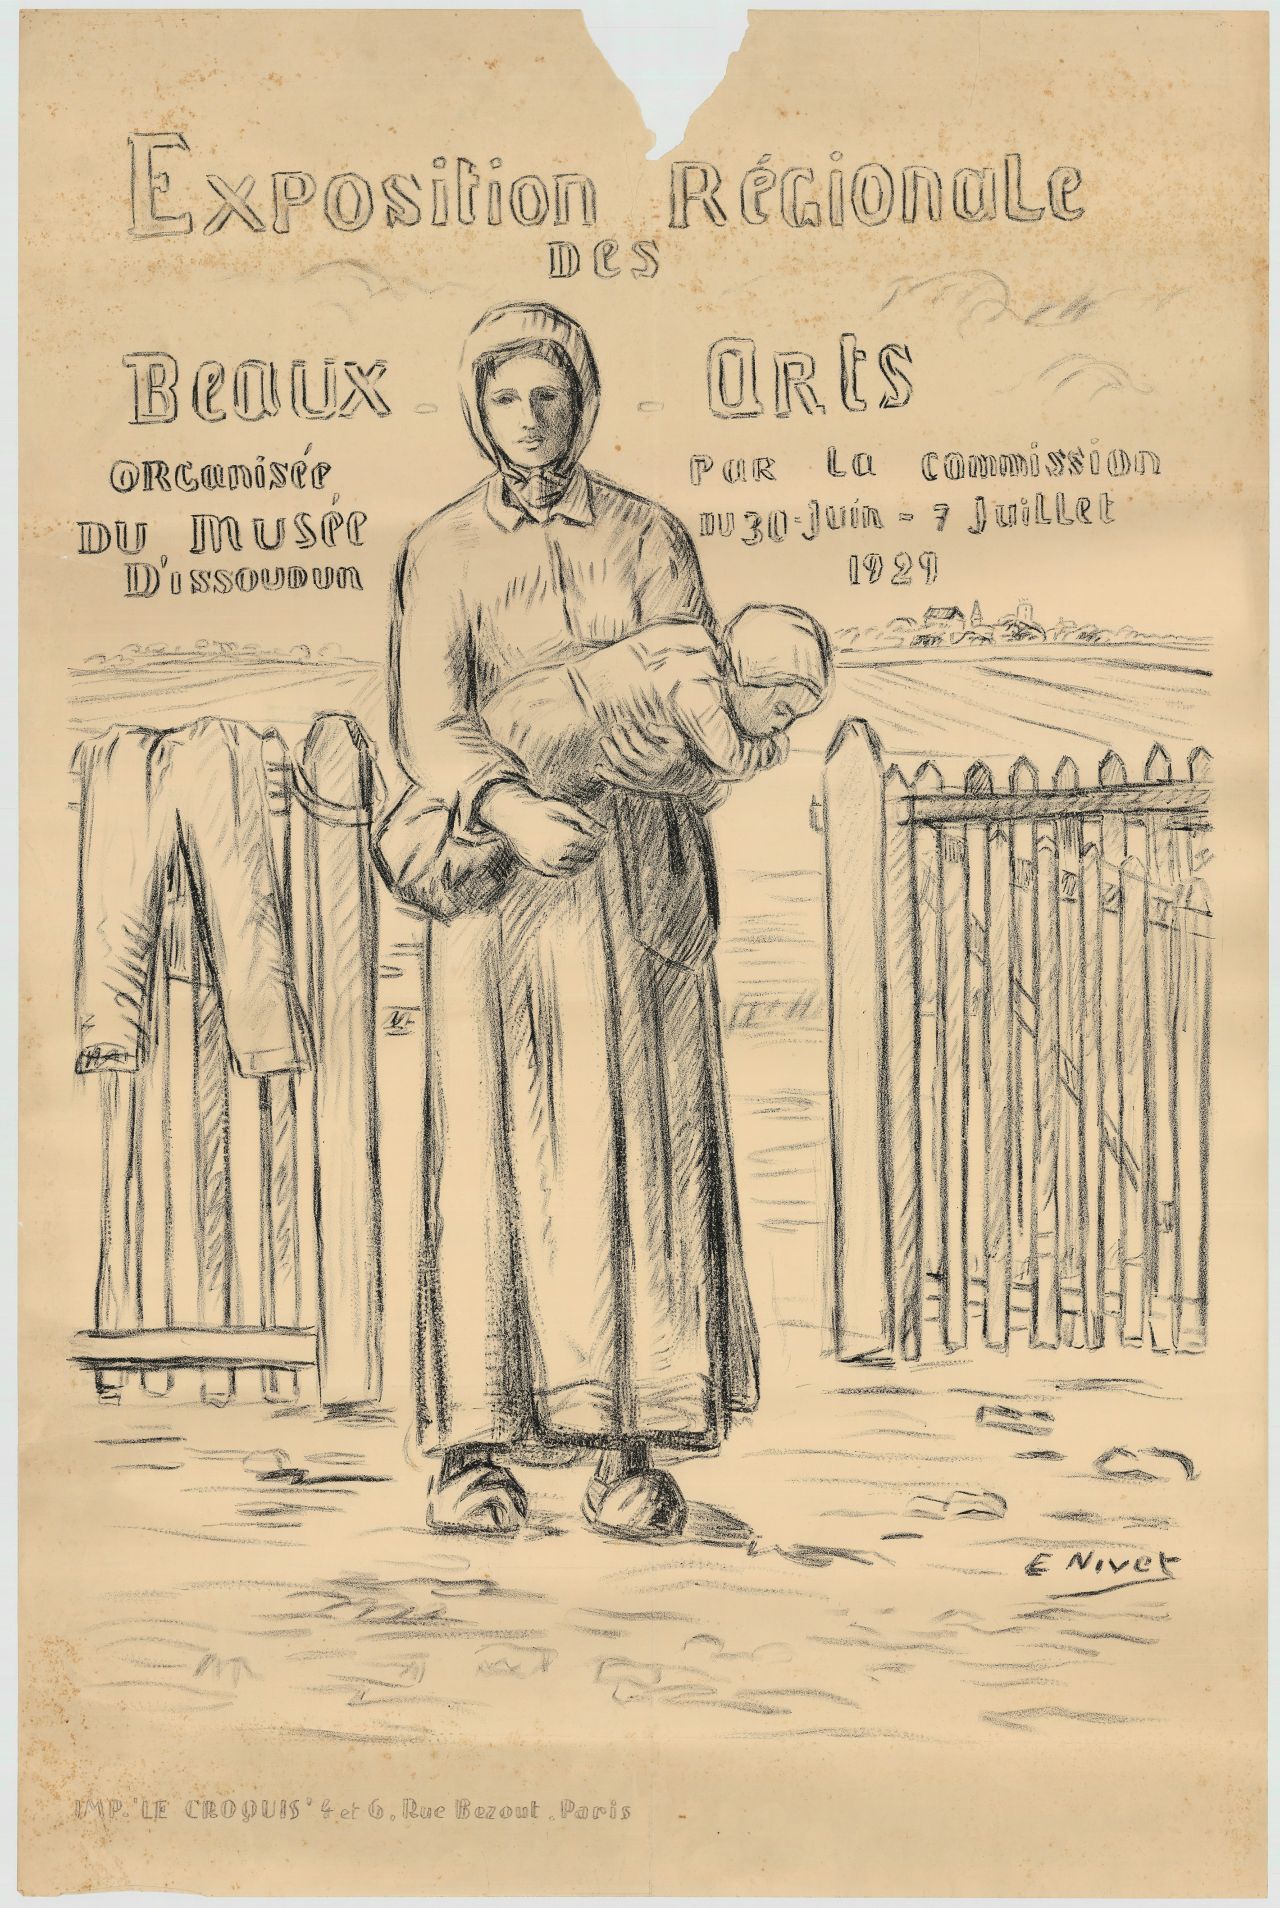 Exposition Régionale
des
Beaux - Arts
organisée par la commission
du musée du 30 - Juin - 7 Juillet
D'issoudun 1929
E Nivet
IMP. "LE CROQUIS" 4 et 6, Rue Bezout. Paris